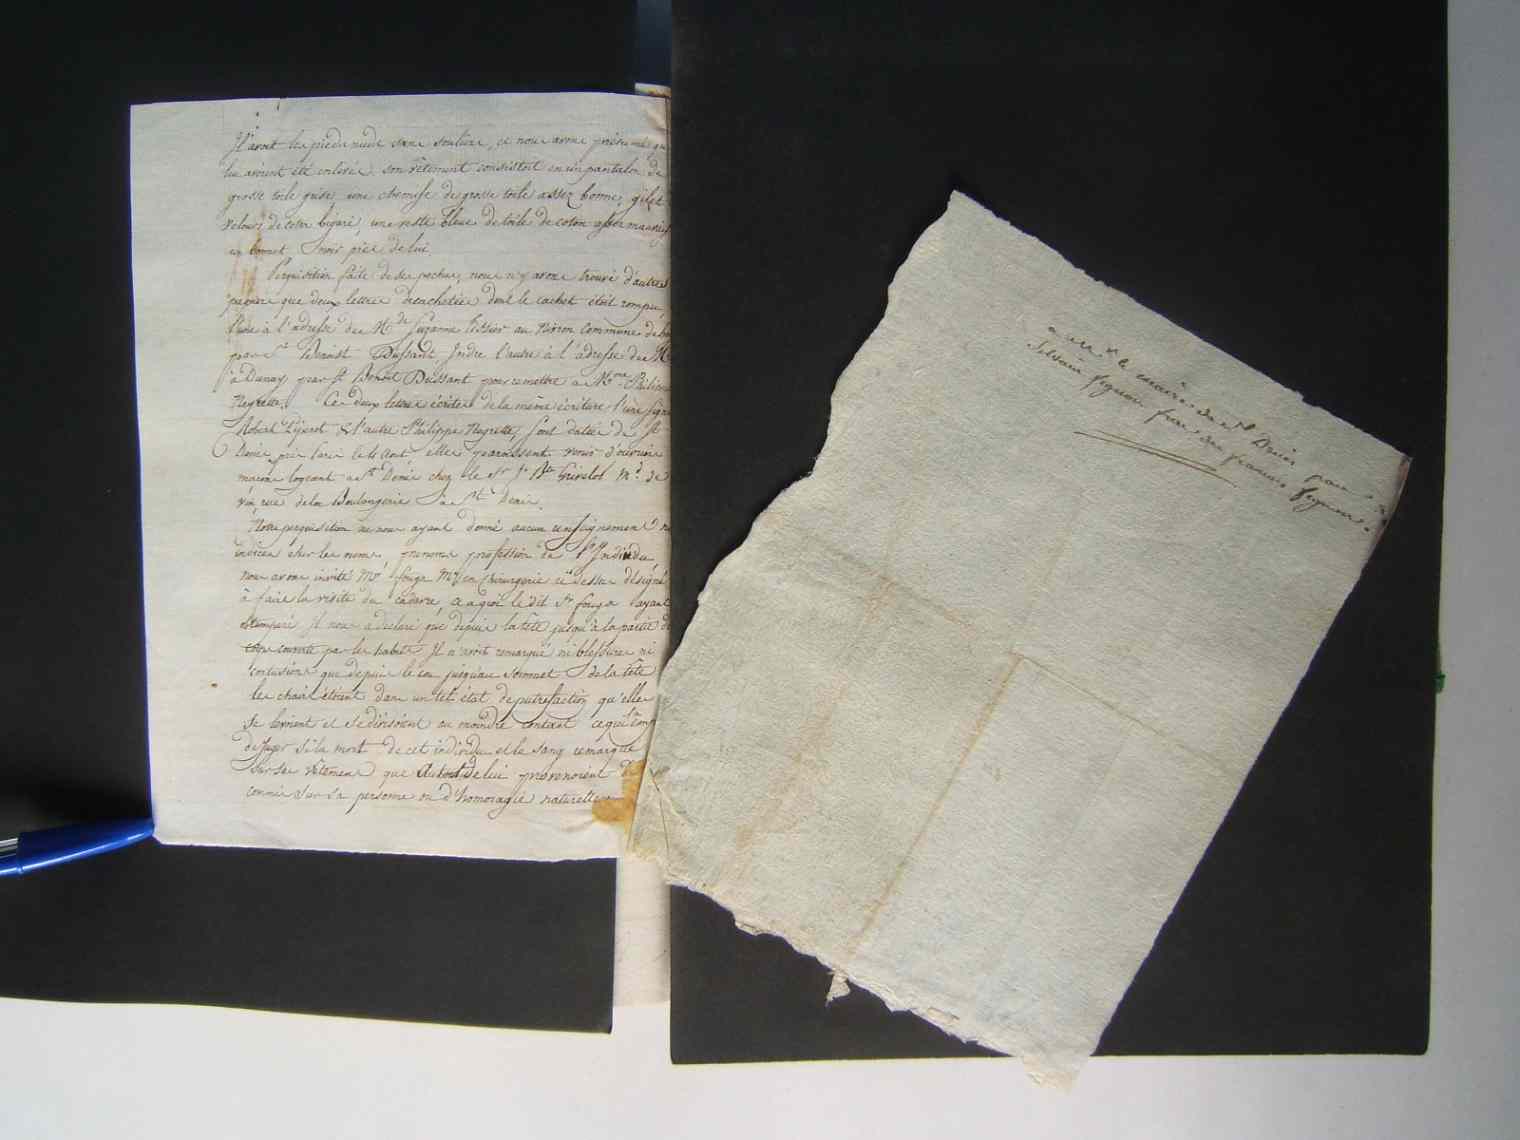 Il avoit les pieds nuds sans souliers, ce nous avons présumé qu
lui avoient été enlevés. son vêtement consistoit en un pantalon de
grosse toile grise, une chemise de grosse toile assez bonne, gilet
velours de coton bigaré, une veste bleue de toile de coton assez mauvais
un bonnet noir près de lui.
Perquisition faite de ses poches, nous n'y avons trouvé d'autres
papiers que deux lettres décachetées dont le cachet étoit rompu,
l'une à l'adresse de Suzanne au commune de
par St Benoist Dussault Indre l'autre à l'adresse de M
à Dunay par St Benoist Dussant pour remettre a Mme Philippe
Negrette. Ces deux lettres écrites de la même écriture l'une signé
Robert & l'autre Philippe Negrette, sont datées de St
Denis près Paris le Aout elles paroissent venir d'ouvriers
maçons logeant a St Denis chez le Sr Jn Bte Grivelot md de
vin rue de la Boulangerie à St Denis.
Notre perquisition ne nous ayant donné aucun renseignement ni
indices sur les noms, prenoms profession de l'Individu
nous avons invité Mr Me en chirurgerie ci dessus désigné
à faire la visite du cadavre, ce a quoi le dit Sr ayant
Il nous a declaré que depuis la tête jusqu'à la partie du
corps couverte par les habits Il n'avoit remarqué ni blessures ni
contusions que depuis le cou jusqu'au sommet de la tête
les chairs étoient dans un tel état de putrefaction qu'elles
se levoient et se divisoient au moindre contact ce qui
de juger si la mort de cet individu et le sang remarqué
sur ses vêtemens que autour de lui provenoient de
commis sur sa personne ou d'homoragie naturelle
a le maire de St Denis pour
Silvain frere de francois